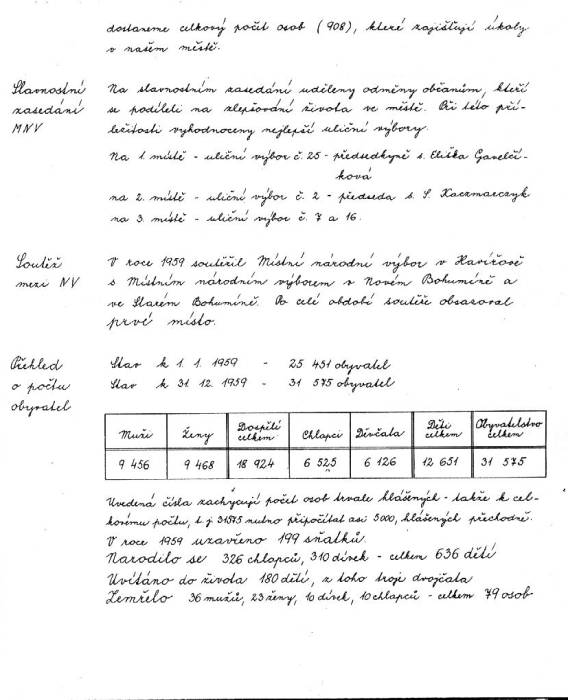 dostaneme celkový počet osob (908), které zajišťují úkoly
v našem městě.
Slavnostní
zasedání
MNV
Na slavnostním zasedání uděleny odměny občanům, kteří
se podíleli na zlepšování života ve městě. Při této pří-
ležitosti vyhodnoceny nejlepší uliční výbory.
Na 1. místě - uliční výbor č. 25 - předsedkyně s. Eliška Gavelčí-
ková
na 2. místě - uliční výbor č. 2 - předseda s. S. Kaczmarczyk
na 3. místě - uliční výbor č. 7 a 16.
Soutěž
mezi NV
V roce 1959 soutěžil Místní národní výbor v Havířově
s Místním národním výborem v Novém Bohumíně a
ve Starém Bohumíně. Po celé období soutěže obsazoval
prvé místo.
Přehled
o počtu
obyvatel
Stav k 1. 1. 1959 - 25 451 obyvatel
Stav k 31. 12. 1959 - 31 575 obyvatel
Muži Ženy Dospělí celkem Chlapci Děvčata Děti celkem Obyvatelstvo celkem
9 456 9 468 18 924 6 525 6 126 12 651 31 575
Uvedená čísla zachycují počet osob trvale hlášených - takže k cel-
kovému počtu, t. j 31575 nutno připočítat asi 5000, hlášených přechodně.
V roce 1959 uzavřeno 199 sňatků.
Narodilo se 326 chlapců, 310 dívek - celkem 636 dětí
Uvítáno do života 180 dětí, z toho troje dvojčata
Zemřelo 36 mužů, 23 ženy, 10 dívek, 10 chlapců - celkem 79 osob